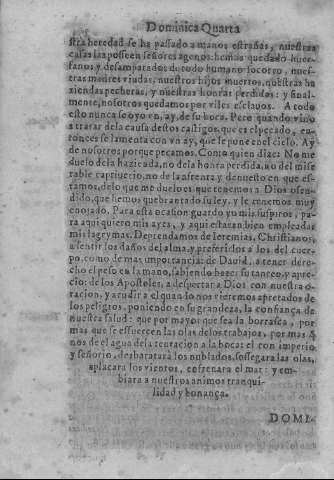 Dominica Quarta
stra heredad se ha passado a manos estrañas, nuestras
casas las posseen señores agenos: hemos quedado huer-
fanos y desamparados de todo humano socorro, nues-
tras madres viudas, nuestros hijos muertos, nuestras ha
ziendas pecheras, y nuestras honras perdidas: y final-
mente, nosotros quedamos por viles esclauos. A todo
esto nunca se oyo en, ay, de su boca. Pero quando vino
a tratar de la causa destos castigos, que es el pecado, en-
tonces se lamenta con vn ay, que le pone en el cielo. Ay
de nosotros porque pecamos. Como quien dize: No me
duelo de la hazienda, no de la honra perdida, no del mise
rable captiuerio, no de la afrenta y denuesto en que es-
tamos, de lo que me duelo es que tenemos a Dios ofen-
dido, que hemos quebrantado su ley, y le tenemos muy
enojado. Para esta ocasion guardo yo mis suspiros, pa-
ra aqui quiero mis ayes, y aqui estaran bien empleadas
mis lagrymas. Deprendamos de Ieremias, Christianos,
a sentir los daños del alma, y preferirlos a los del cuer-
po, como de mas importancia: de Dauid, a tener dere-
cho el peso en la mano, sabiendo hazer su tanteo, y apre-
cio: de los Apostoles, a despertar a Dios con nuestra o-
racion, y acudir a el quando nos vieremos apretados de
los peligros, poniendo en su grandeza, la confiança de
nuestra salud: que por mayor que sea la borrasca, por
mas que se esfuercen las olas de los trabajos, por mas
nos de el agua de la tentacion a la boca: el con imperio
y señorio, desbaratarà los nublados, sossegara las olas,
aplacara los vientos, enfrenara el mar: y em-
biara a nuestros animos tranqui-
lidad y bonança.
DOMI-